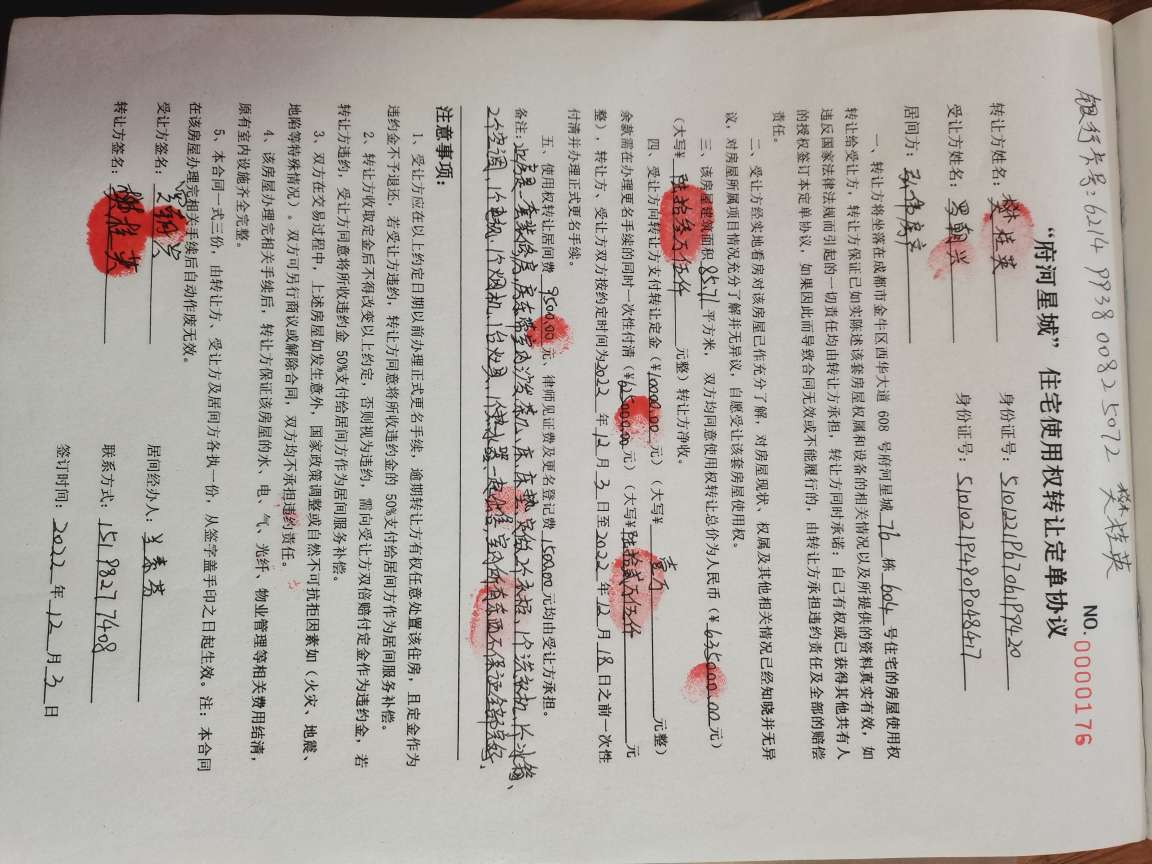 银行卡号：6214 9938 0082 5072 桂英
NO.0000176
“府河星城”住宅使用权转让定单协议
转让方姓名：桂英 身份证号：510122196706199420
受让方姓名：朝兴 身份证号：510102194909084847
居间方：房产
一、转让方将坐落在成都市金牛区西华大道 608 号府河星城 76 栋 604 号住宅的房屋使用权
转让给受让方，转让方保证已如实陈述该套房屋权属和设备的相关情况以及所提供的资料真实有效，如
违反国家法律法规而引起的一切责任均由转让方承担，转让方同时承诺：自己有权或已获得其他共有人
的授权签订本定单协议，如果因此而导致合同无效或不能履行的，由转让方承担违约责任及全部的赔偿
责任。
二、受让方经实地看房对该房屋已作充分了解，对房屋现状、权属及其他相关情况已经知晓并无异
议，对房屋所属项目情况充分了解并无异议，自愿受让该套房屋使用权。
三、该房屋建筑面积 85.71 平方米，双方均同意使用权转让总价为人民币（¥635000.00元）
（大写¥：陆拾叁万伍仟 元整）转让方净收。
四、受让方向转让方支付转让定金（¥10000.00元）（大写¥ 壹万 元整）
余款需在办理更名手续的同时一次性付清（¥625000.00元）（大写¥陆拾贰万伍仟 元
整），转让方、受让方双方按约定时间为2022年12月3日至2022年12月18日之前一次性
付清并办理正式更名手续。
五、使用权转让居间费 9500.00 元、律师见证费及更名登记费 1500.00 元均由受让方承担。
备注：此房是一套装修房，房东带室内沙发、茶几、床、床垫、定做衣柜、1个洗衣机、1个冰箱、
2个空调、1个电视、1个烟机、1台灶具、1个热水器、室内所有东西不保证全部完好。
注意事项：
1、受让方应在以上约定日期以前办理正式更名手续，逾期转让方有权任意处置该住房，且定金作为
违约金不予退还，若受让方违约，转让方同意将所收违约金的 50%支付给居间方作为居间服务补偿。
2、转让方收取定金后不得改变以上约定，否则视为违约，需向受让方双倍赔付定金作为违约金，若
转让方违约，受让方同意将所收违约金 50%支付给居间方作为居间服务补偿。
3、双方在交易过程中，上述房屋如发生意外，国家政策调整或自然不可抗拒因素如（火灾、地震、
地陷等特殊情况）。双方可另行商议或解除合同，双方均不承担违约责任。
4、该房屋办理完相关手续后，转让方保证该房屋的水、电、气、光纤、物业管理等相关费用结清，
原有室内设施齐全完整。
5、本合同一式三份，由转让方、受让方及居间方各执一份，从签字盖手印之日起生效。注：本合同
在该房屋办理完相关手续后自动作废无效。
受让方签名： 居间经办人：
转让方签名：桂英 联系方式：15198277408
签订时间：2022年12月3日